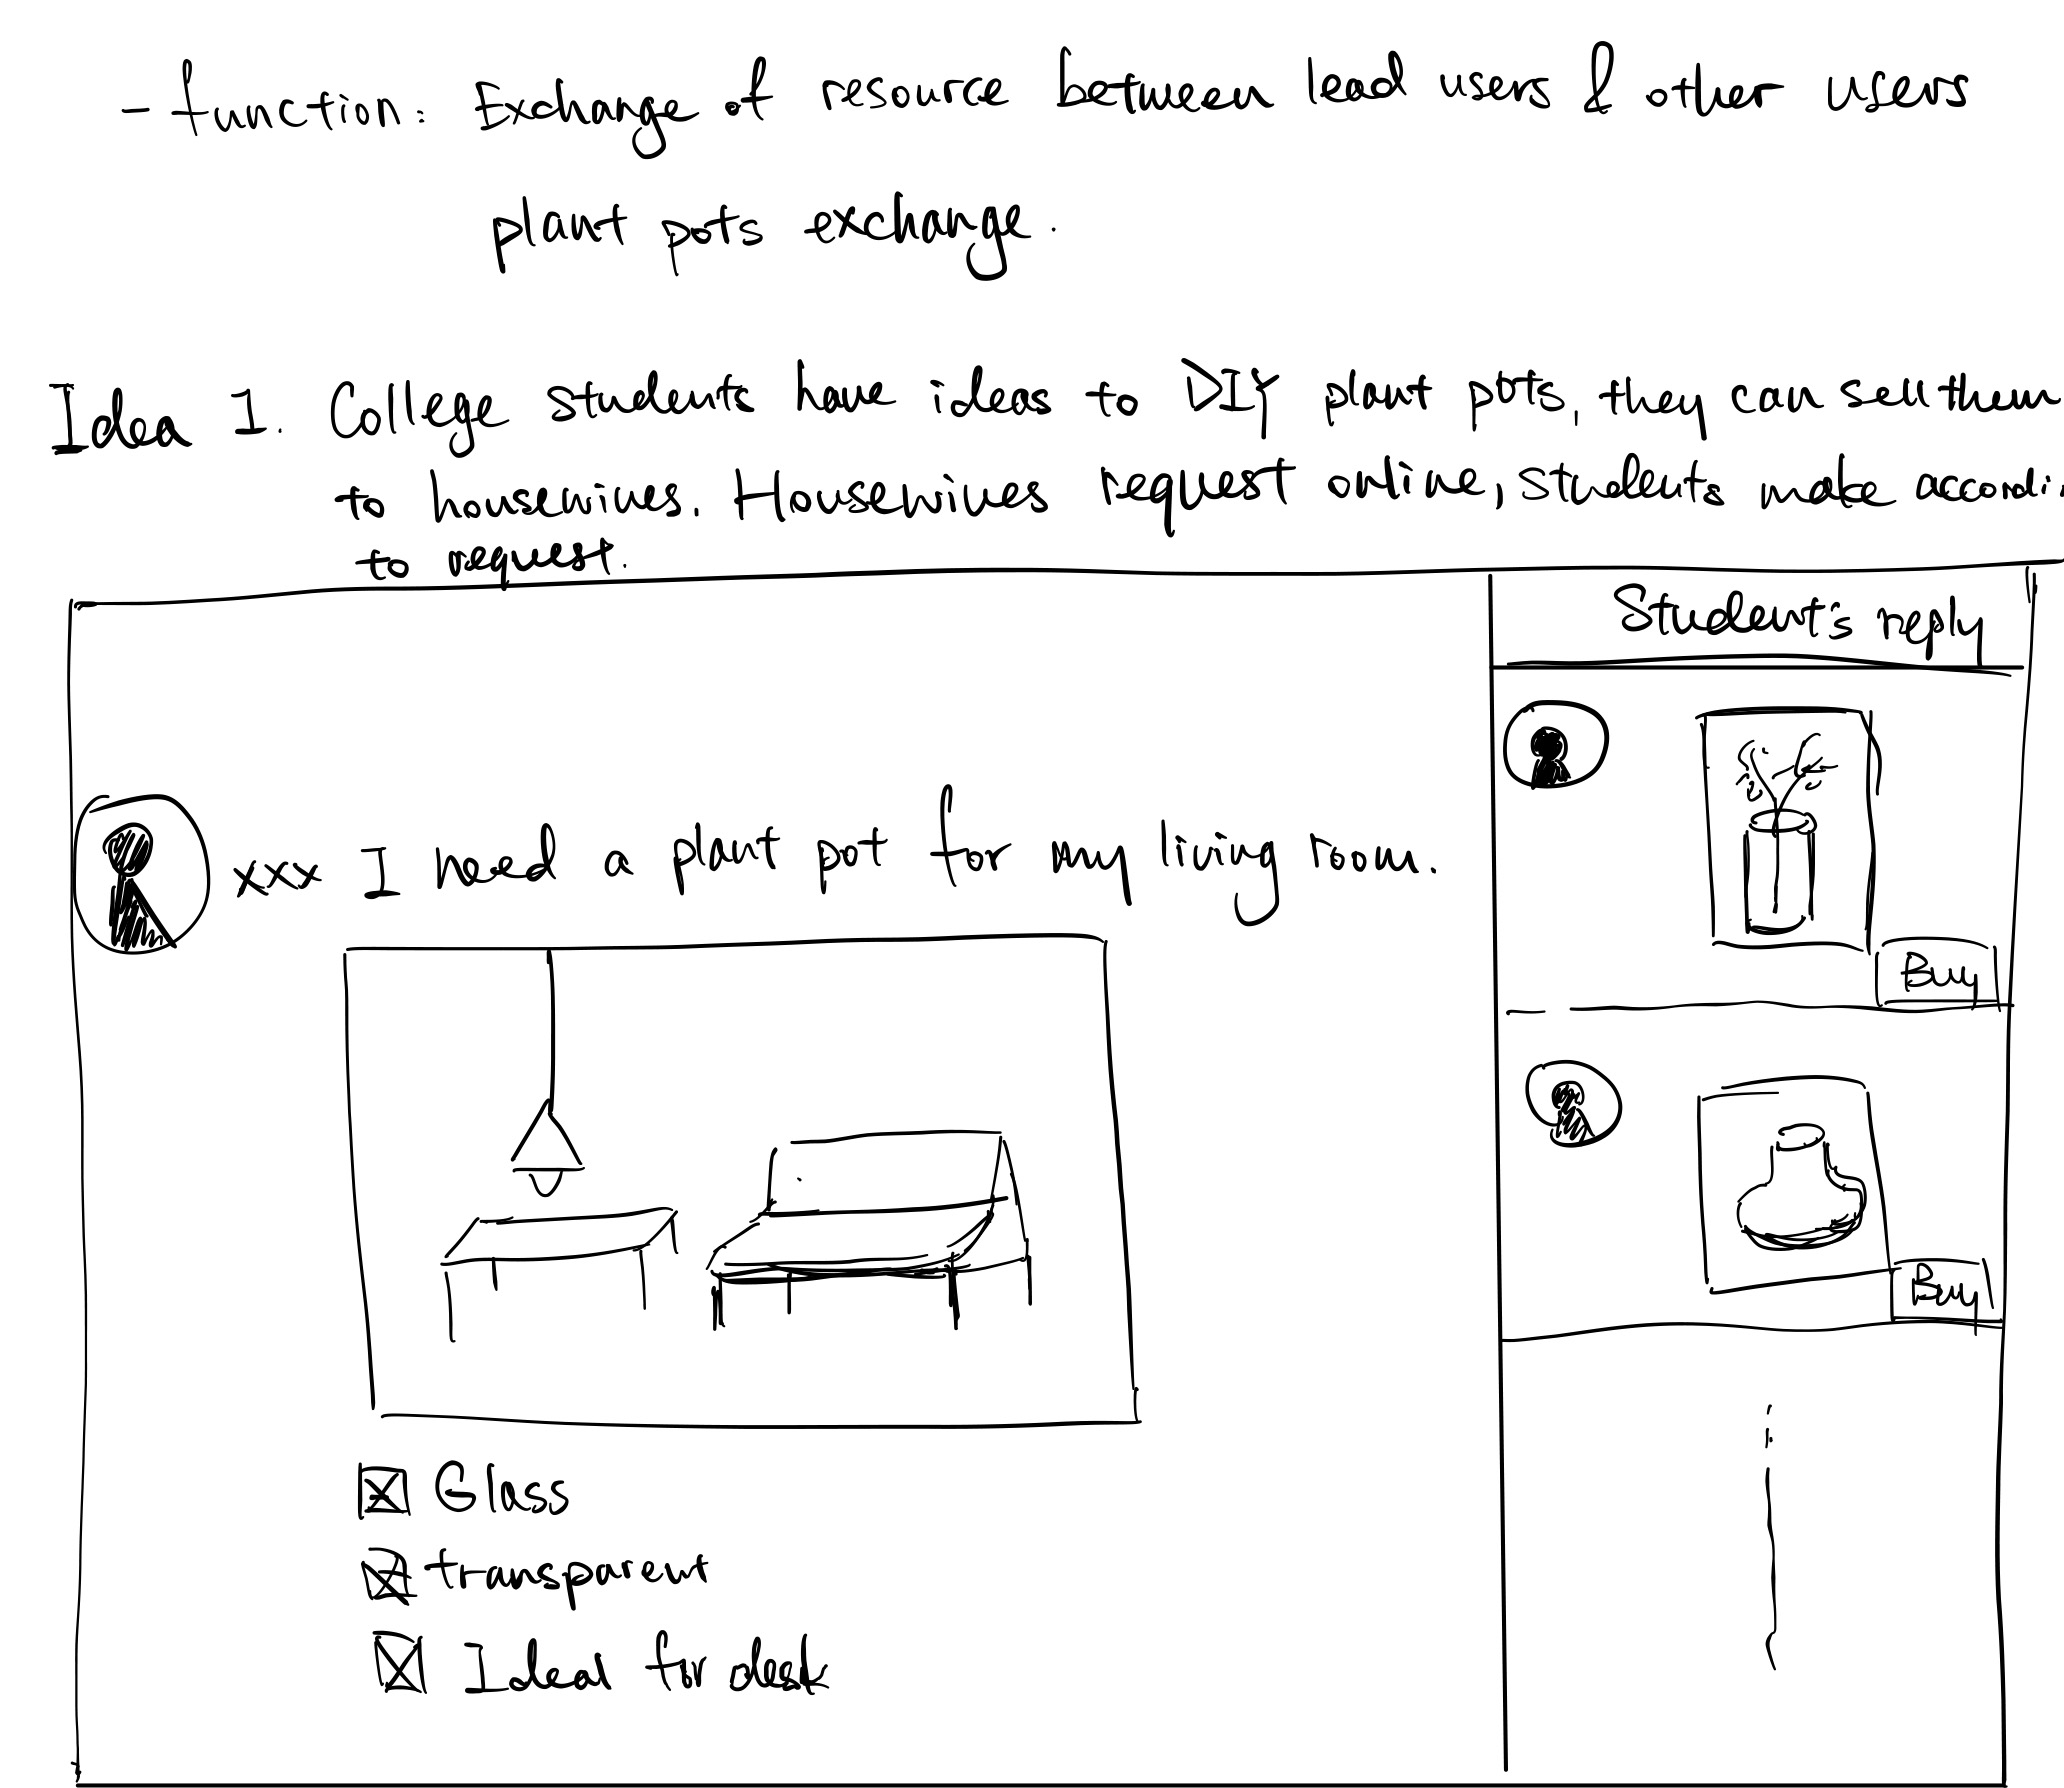 - function: Exchange of resource between lead users & other users
plant pots exchange.
Idea 1. College students have ideas to DIY plant pots, they can sell them
to housewives. Housewives request online, students make accordi
to request.
Students reply
xxx I need a plant pot for my living room.
Buy
Buy
Glass
transparent
Ideal for desk